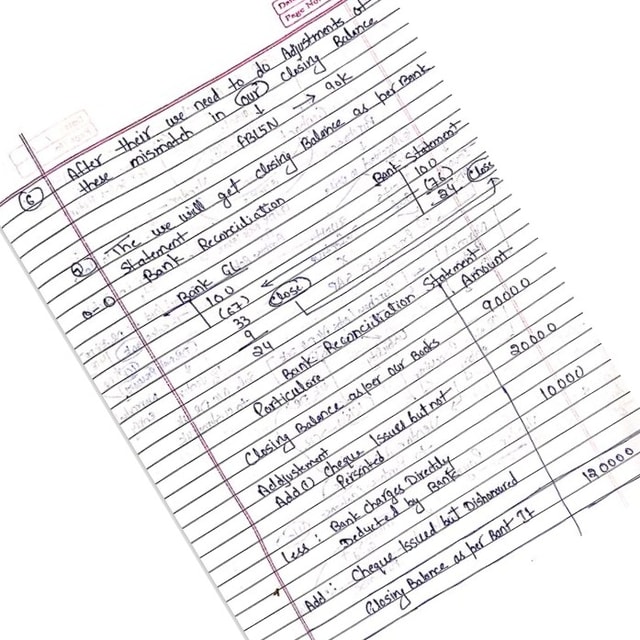 Page No.
6 After their we need to do Adjustments of
these mismatch in our closing Balance
↓
FBL5N → 90K
7 The we will get closing Balance as per Bank
Statement
Bank Reconciliation
Bank Statement
100
(76)
24 Close
Bank GL
100
(67) Close
33
9
24
Bank Reconciliation Statement
Particulars Amount
Closing Balance as per our Books 90000
Addjustement
Add (1) Cheque Issued but not 20000
Persented
Less : Bank Charges Directly 10000
Deducted by Bank
Add : Cheque Issued but Dishonoured
Closing Balance as per Bank 120000